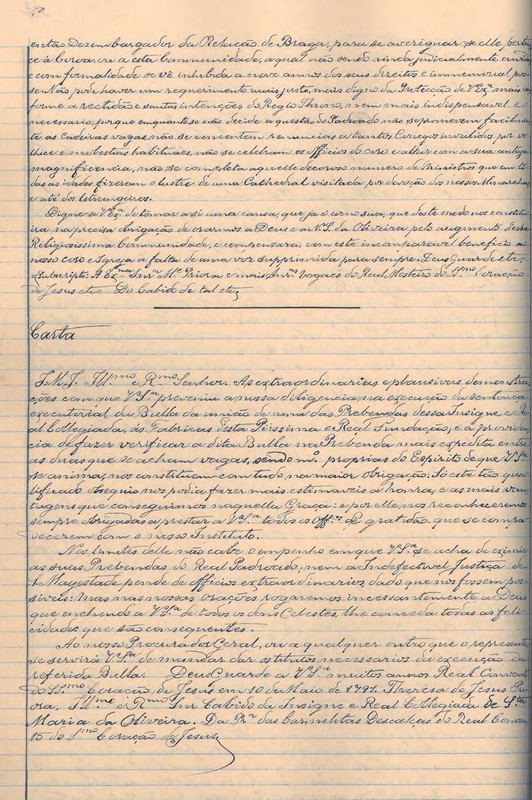 então Dezembargador da Relação de Braga, para se averiguar se elle perten
ce á Coroa, ou a esta Communidade, a qual não sendo ainda judicialmente ouvida
e com formalidade se vê inhibida a nove annos dos seus direitos e immemorial pos
se. Não póde haver um requerimento mais justo, mais digno da Protecção de V. Ex.ª mais con
forme a rectidão e santas intenções do Regio Throno, nem mais indispensavel e
necessario; porque emquanto se não decide a questão do Padroado não se pó
te as Cadeiras vagas, não se concentem renuncias a tantos Conegos invalidos por ve
lhice e molestias habituaes, não se celebram os Officios do coro e altar com a sua antiga
magnificencia, não se completa aquelle decoroso numero de Ministros que em to
das as idades fizeram o lustre de uma Cathedral visitada por devoção dos nossos Monarchas
e até dos Estrangeiros.
Digne-se V. Ex.ª de tomar a si uma causa, que já é como sua, que deste modo nos constitui
ra na precisa obrigação de orarmos a Deus e a N. S. da Oliveira pelo augmento dessa
Religiosissima Communidade, e compensara com este incomparavel beneficio ao
nosso coro e Igreja a falta de uma voz supprimida para sempre. Deus Guarde etc.
Subscripto: A Ex.ma Snr.ª M.e Priora e mais Snr.as Vogaes do Real Mosteiro do SS.mo Coração
de Jesus etc. Do Cabido de tal etc.
Carta
J. M. J. Ill.mo e R.mo Senhor. As extraordinarias e plausiveis demonstra
ções com que V. S.ª preveniu a nossa diligencia na execução da sentença
executorial da Bulla da união de uma das Prebendas dessa Insigne e Re
al Collegiada, ás Fabricas desta Piissima e Real Fundação, e a providen
cia de fazer verificar a dita Bulla na Prebenda mais expedita entre
as duas que se acham vagas, sendo m.to proprias do Espirito de que V. S.ª
se anima, nos constituem com tudo na maior obrigação. Só este tão qua
lificado obsequio nos podia fazer mais estimaveis a honra, e as mais van
tagens que conseguimos naquella Graça: e por elle nos reconheceremos
sempre obrigadas a prestar a V. S.ª todos os off.os de gratidão, que se compa
decerem com o nosso Instituto.
Nos limites delle não cabe o empenho em que V. S.ª se acha de eximir
as suas Prebendas do Real Padroado; nem a Indefectivel Justiça de
S. Magestade pende de officios extraordinarios, dado que nos fossem pos
siveis. Mas nas nossas orações rogaremos incessantemente a Deus
que enchendo a V. S.ª de todos os dons Celestes, lhe conceda todas as feli
cidades que são consequentes.
Ao nosso Procurador Geral, ou a qualquer outro que o represente
se servirá V. S.ª de mandar dar os titulos necessarios da execução da
referida Bulla. Deus Guarde a V. S.ª muitos annos. Real Convento
do SS.mo Coração de Jesus em 10 de Maio de 1791. Thereza de Jesus Pri
ora. Ill.mo e R.mo Snr. Cabido da Insigne e Real Collegiada de S.ta
Maria da Oliveira. Da Pr.ª das Carmelitas Descalças do Real Conven
to do SS.mo Coração de Jesus